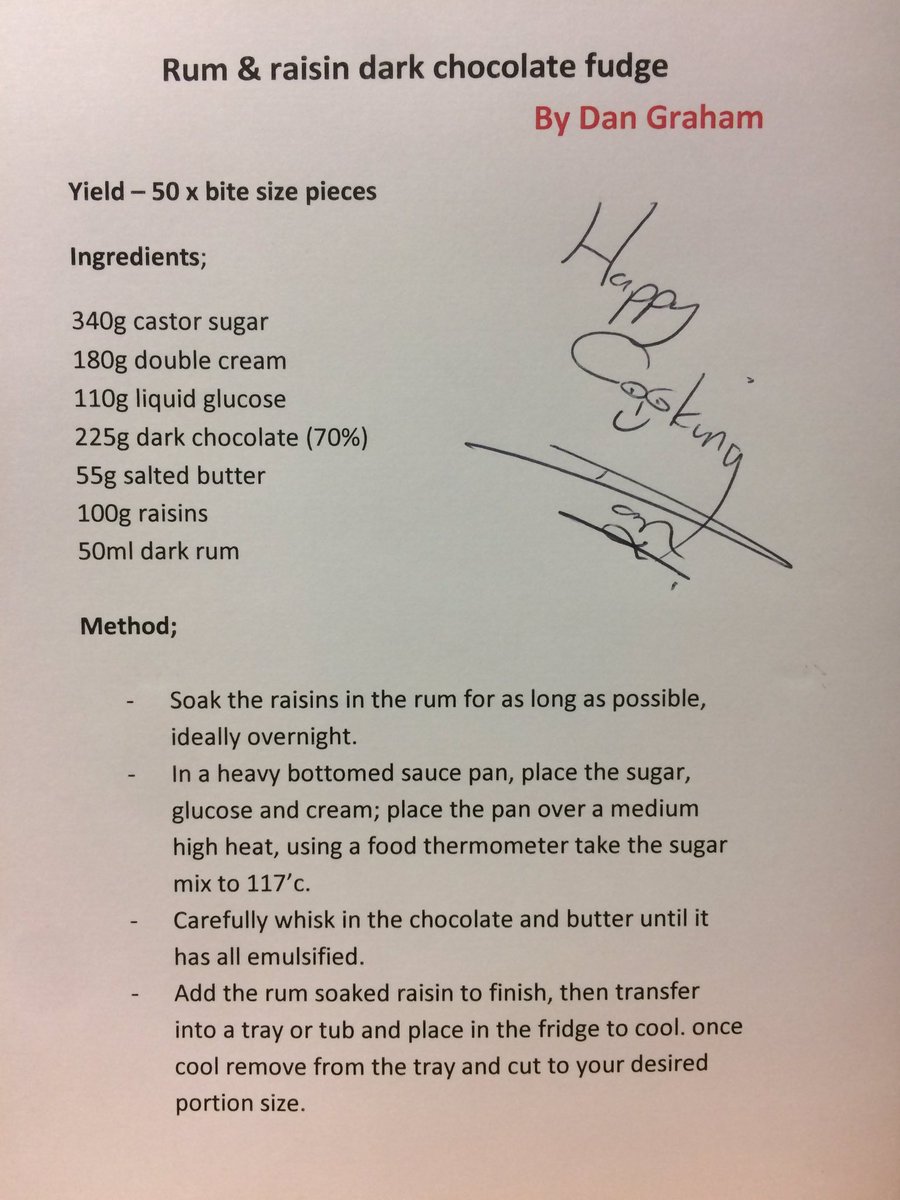 Rum & raisin dark chocolate fudge
By Dan Graham
Yield – 50 x bite size pieces
Ingredients;
340g castor sugar
180g double cream
110g liquid glucose
225g dark chocolate (70%)
55g salted butter
100g raisins
50ml dark rum
Happy
Cooking
Method;
- Soak the raisins in the rum for as long as possible,
ideally overnight.
- In a heavy bottomed sauce pan, place the sugar,
glucose and cream; place the pan over a medium
high heat, using a food thermometer take the sugar
mix to 117’c.
- Carefully whisk in the chocolate and butter until it
has all emulsified.
- Add the rum soaked raisin to finish, then transfer
into a tray or tub and place in the fridge to cool. once
cool remove from the tray and cut to your desired
portion size.